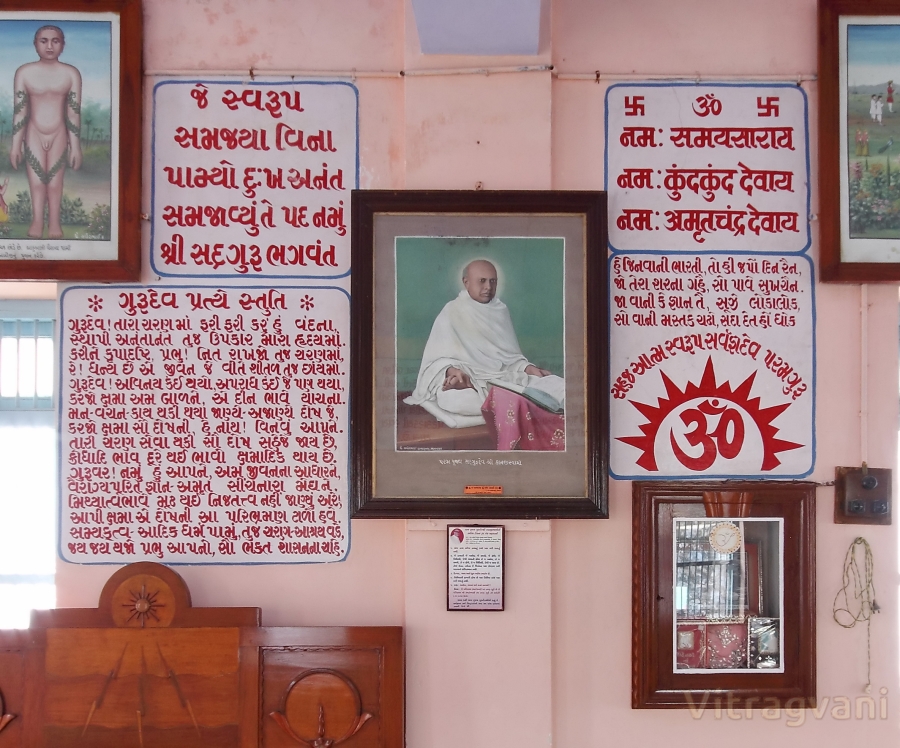 જે સ્વરૂપ
સમજ્યા વિના
પામ્યો દુઃખ અનંત
સમજાવ્યું તે પદ નમું
શ્રી સદ્ગુરુ ભગવંત
卐 ૐ 卐
નમઃ સમયસારાય
નમઃ કુંદકુંદ દેવાય
નમઃ અમૃતચંદ્ર દેવાય
હે જિનવાની ભારતી, તોહી જપોં દિન રૈન,
જો તેરા શરના ગહૈ, સો પાવે સુખચૈન.
જા વાની કે જ્ઞાન તે, સૂઝે લોકાલોક
સો વાની મસ્તક ચઢો, સદા દેત હોં ધોક
સહજ આત્મ સ્વરૂપ સર્વજ્ઞદેવ પરમગુરૂ
ૐ
* ગુરૂદેવ પ્રત્યે સ્તુતિ *
ગુરૂદેવ! તારા ચરણમાં ફરી ફરી કરું હું વંદના,
સ્થાપી અનંતાનંત તુજ ઉપકાર મારા હૃદયમાં.
કરીને કૃપાદૃષ્ટિ, પ્રભુ! નિત રાખજો તુજ ચરણમાં,
રે! ધન્ય છે એ જીવન જે વીતે શીતળ તુજ છાંયમાં.
ગુરૂદેવ! અવિનય કંઈ થયો, અપરાધ કંઈ જે પણ થયા,
કરજો ક્ષમા અમ બાળને, એ દીન ભાવે યાચના.
મન-વચન-કાય થકી થયા જાણ્યે-અજાણ્યે દોષ જે,
કરજો ક્ષમા સૌ દોષની, હે નાથ! વિનવું આપને.
તારી ચરણ સેવા થકી સૌ દોષ સહેજે જાય છે,
ક્રોધાદિ ભાવ દૂર થઈ ભાવો ક્ષમાદિક થાય છે.
ગુરૂવર! નમું હું આપને, અમ જીવનના આધારને,
વૈરાગ્યપૂરિત જ્ઞાન-અમૃત સીંચનારા મેઘને.
મિથ્યાત્વભાવે મૂઢ થઈ નિજતત્ત્વ નહીં જાણ્યું અરે!
આપી ક્ષમા એ દોષની આ પરિભ્રમણ ટાળો હવે.
સમ્યક્ત્વ-આદિક ધર્મ પામું, તુજ ચરણ-આશ્રય વડે,
જય જય થજો પ્રભુ આપનો, સૌ ભક્ત શાસનના ચહે.
ૐ
Vitragvani